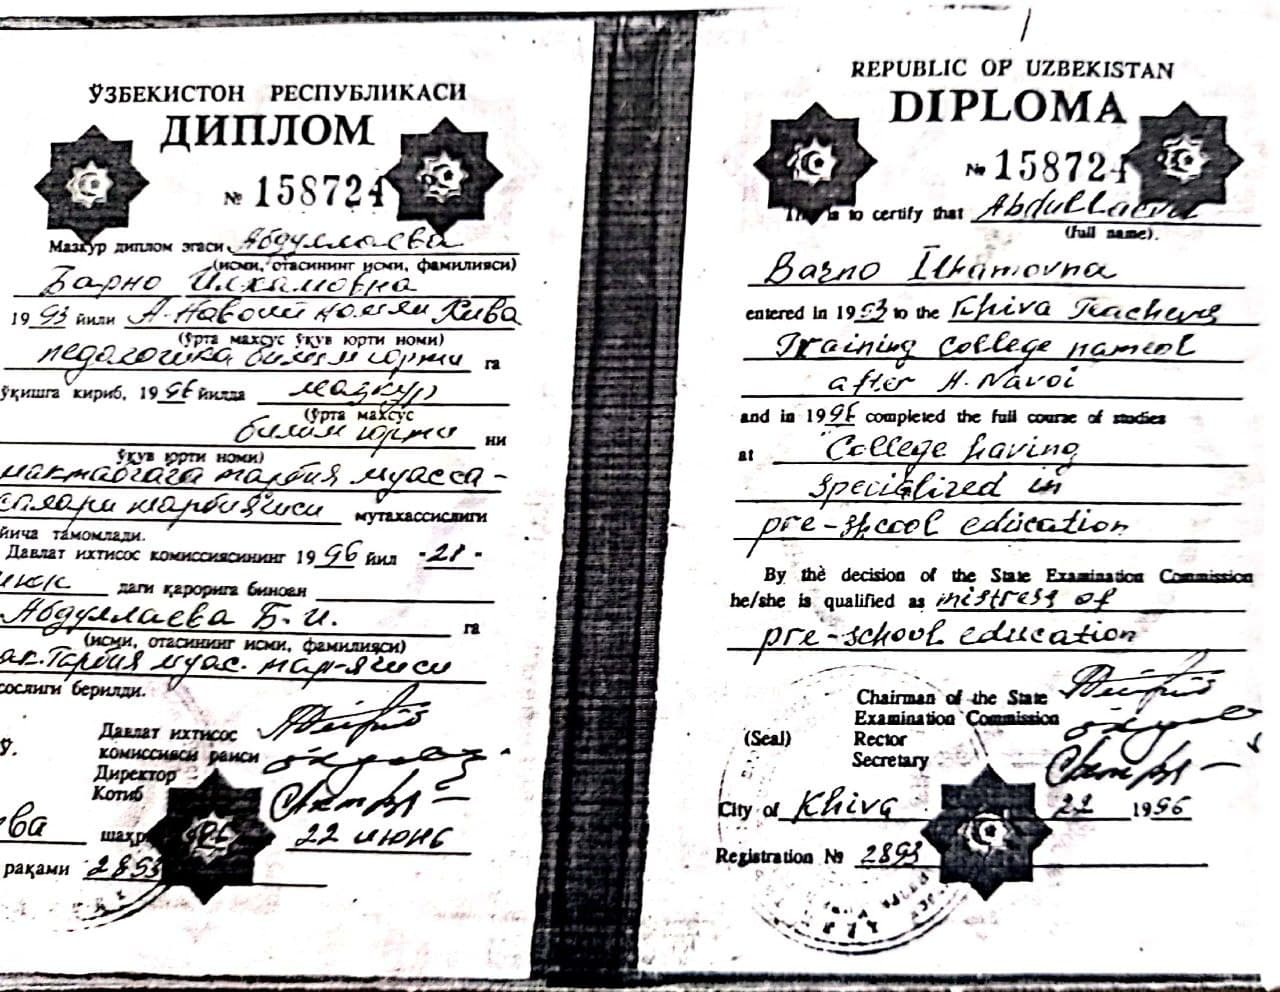 ЎЗБЕКИСТОН РЕСПУБЛИКАСИ
ДИПЛОМ
№ 158724
Мазкур диплом эгаси Абдуллаева
(исми, отасининг исми, фамилияси)
Барно Илхамовна
1993 йили А. Навоий номли Хива
(ўрта махсус ўқув юрти номи)
педагогика билим юрти га
ўқишга кириб, 1996 йилда мазкур
(ўрта махсус
билим юрти ни
ўқув юрти номи)
мактабгача тарбия муасса-
салари тарбиячиси мутахассислиги
йича тамомлади.
Давлат ихтисос комиссиясининг 1996 йил
даги қарорига биноан
Абдуллаева Б. И. га
(исми, отасининг исми, фамилияси)
Тарбия муас. тар-ячиси
сослиги берилди.
Давлат ихтисос
комиссияси раиси
Директор
Котиб
ва шаҳр 22 июнь
рақами 2893
REPUBLIC OF UZBEKISTAN
DIPLOMA
№ 158724
This is to certify that Abdullaeva
(full name).
Barno Ilhamovna
entered in 1993 to the Khiva Teachers
Training college named
after A. Navoi
and in 1996 completed the full course of studies
at College having
specialized in
pre-shcool education
By the decision of the State Examination Commission
he/she is qualified as mistress of
pre-school education
Chairman of the State
Examination Commission
(Seal) Rector
Secretary
City of Khiva 22 1996
Registration № 2893